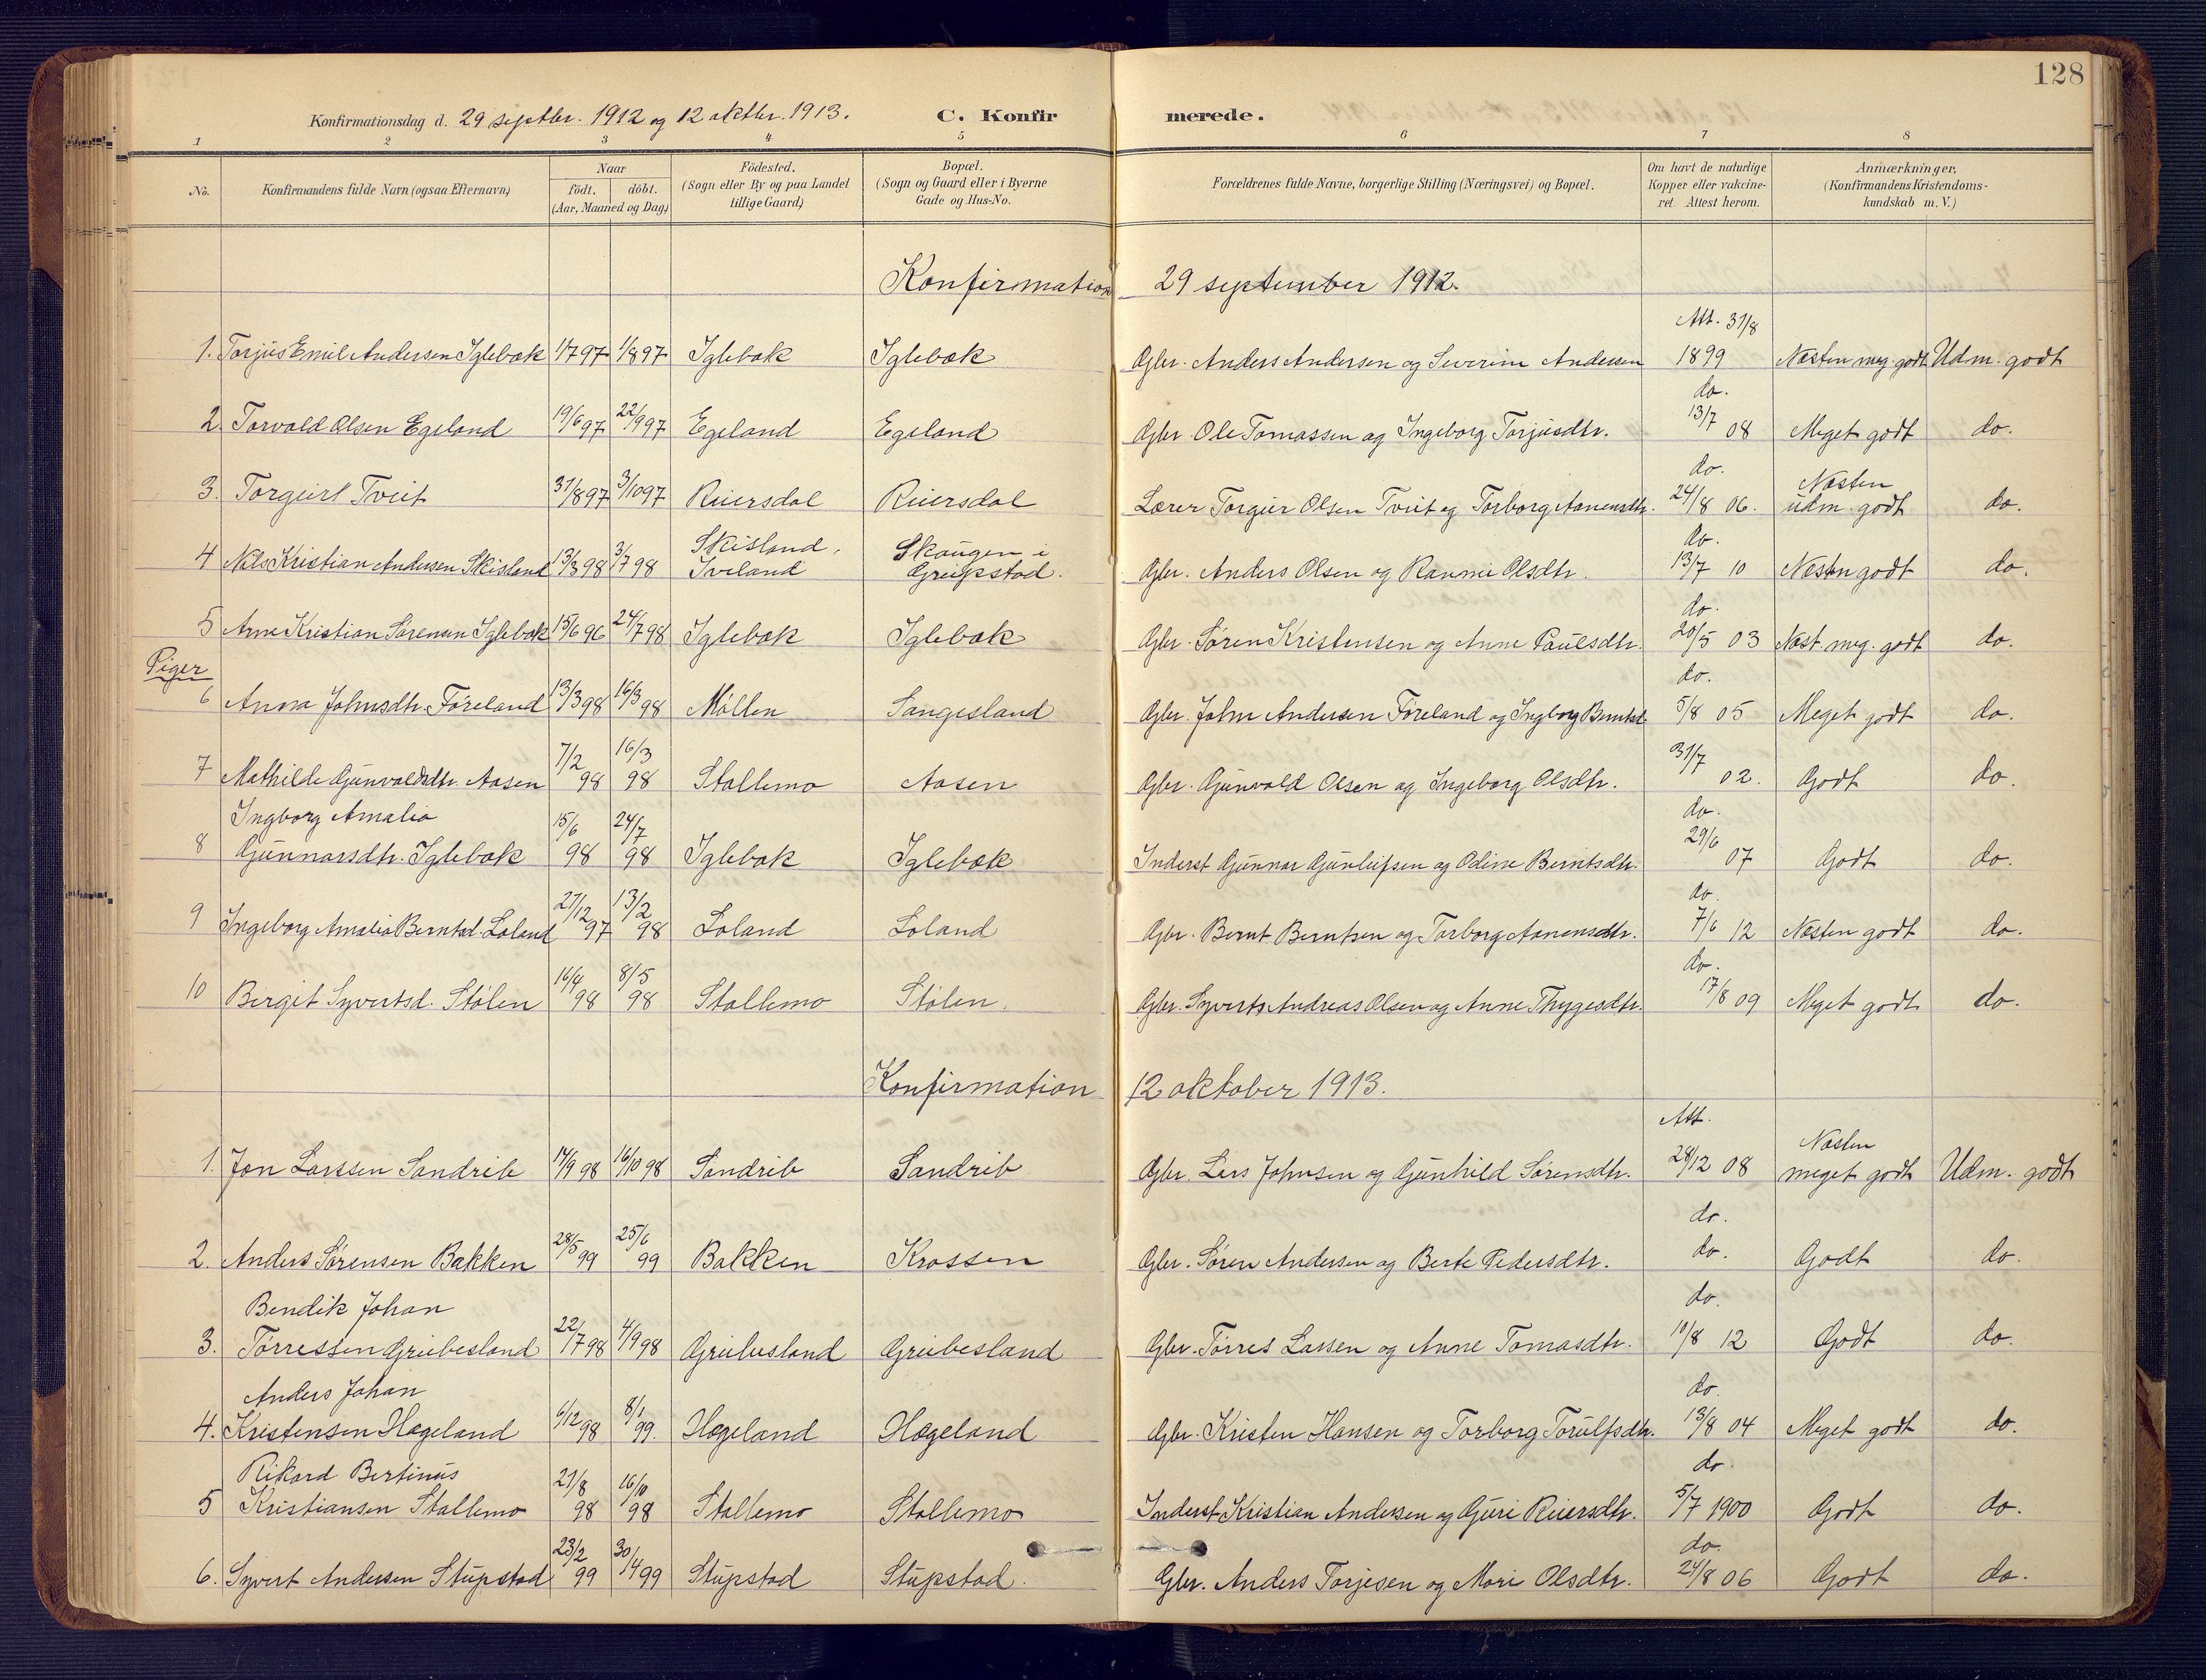 128
Konfirmationsdag d. 29 septbr. 1912 og 12 oktbr. 1913. C. Konfirmerede.
1 2 3 4 5 6 7 8
No. Konfirmandens fulde Navn (ogsaa Efternavn) Naar Födested. Bopæl. Forældrenes fulde Navne, borgerlige Stilling (Næringsvei) og Bopæl. Om havt de naturlige Anmærkninger,
födt. döbt. (Sogn eller By og paa Landet (Sogn og Gaard eller i Byerne Kopper eller vakcine- (Konfirmandens Kristendoms-
(Aar, Maaned og Dag) tillige Gaard) Gade og Hus-No. ret. Attest herom. kundskab m. V.)
Konfirmation 29 september 1912.
Att. 31/8
1. Torjus Emil Andersen Iglebæk 1/7 97 1/8 97 Iglebæk Iglebæk Gbr. Anders Andersen og Severine Andersen 1899 Næsten meg. godt Udm. godt
do.
2. Torvald Olsen Egeland 19/6 97 22/9 97 Egeland Egeland Gbr. Ole Tomassen og Ingeborg Torjusdtr. 13/7 08 Meget godt do.
do. Næsten
3. Torgeir T Tveit 31/8 97 3/10 97 Reiersdal Reiersdal Lærer Torgeir Olsen Tveit og Torborg Aanensdtr. 24/8 06. udm. godt do.
Skisland, Skaugen i do.
4 Nils Kristian Andersen Skisland 13/3 98 3/7 98 Iveland Greipstad. Gbr. Anders Olsen og Rannei Olsdtr. 13/7 10 Næsten godt do.
do.
5 Arne Kristian Sørensen Iglebæk 15/6 96 24/7 98 Iglebæk Iglebæk Gbr. Søren Kristensen og Anne Paulsdtr. 20/5 03 Næst. meg. godt do.
Piger do.
6 Anna Johnsdtr. Føreland 13/3 98 16/3 98 Møllen Sangesland Gbr. John Andersen Føreland og Ingborg Berntsd. 5/8 05 Meget godt do.
7 Mathilde Gunvaldsdtr. Aasen 7/2 98 16/3 98 Stallemo Aasen Gbr. Gunvald Olsen og Ingeborg Olsdtr. 31/7 02. Godt do.
Ingborg Amalia do.
8 Gunnarsdtr. Iglebæk 15/6 98 24/7 98 Iglebæk Iglebæk Inderst Gunnar Gunleifsen og Odine Berntsdtr. 29/6 07 Godt do.
do.
9 Ingeborg Amalia Berntsd. Loland 27/12 97 13/2 98 Loland Loland Gbr. Bernt Berntsen og Torborg Aanensdtr. 7/6 12 Næsten godt do.
do.
10 Birgit Syvertsd. Stølen 16/4 98 8/5 98 Stallemo Stølen. Gbr. Syvert Andreas Olsen og Anne Thygesdtr. 17/8 09 Meget godt do.
Konfirmation 12 oktober 1913.
Att. Næsten
1. Jon Larssen Sandrib 14/9 98 16/10 98 Sandrib Sandrib Gbr. Lars Johnsen og Gunhild Sørensdtr. 28/12 08 meget godt Udm. godt
do.
2. Anders Sørensen Bakken 28/5 99 25/6 99 Bakken Krossen Gbr. Søren Andersen og Berte Pedersdtr. do. Godt do.
Bendik Johan do.
3. Tørressen Greibesland 22/7 98 4/9 98 Greibesland Greibesland Gbr. Tørres Larsen og Anne Tomasdtr. 10/8 12 Godt do.
Anders Johan do.
4. Kristensen Hægeland 6/12 98 8/1 99. Hægeland Hægeland Gbr. Kristen Hansen og Torborg Torulfsdtr. 13/8 04 Meget godt do.
Rikard Bertinus do.
5 Kristiansen Stallemo 21/8 98 16/10 98 Stallemo Stallemo Inderst Kristian Andersen og Guri Reiersdtr. 5/7 1900 Godt do.
do.
6. Syvert Andersen Stupstad 23/2 99 30/4 99 Stupstad Stupstad. Gbr. Anders Torjesen og Mari Olsdtr. 24/8 06 Godt do.